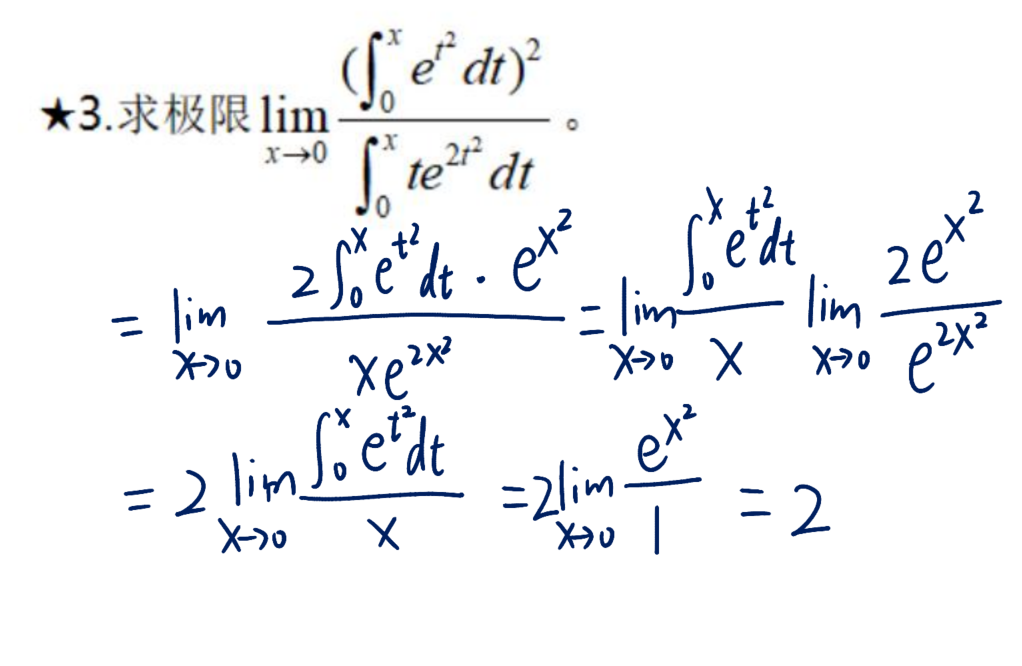 ★3.求极限 $\lim\limits_{x \to 0} \frac{(\int_0^x e^{t^2} dt)^2}{\int_0^x te^{2t^2} dt}$。
$= \lim\limits_{x \to 0} \frac{2\int_0^x e^{t^2} dt \cdot e^{x^2}}{xe^{2x^2}} = \lim\limits_{x \to 0} \frac{\int_0^x e^{t^2} dt}{x} \lim\limits_{x \to 0} \frac{2e^{x^2}}{e^{2x^2}}$
$= 2 \lim\limits_{x \to 0} \frac{\int_0^x e^{t^2} dt}{x} = 2 \lim\limits_{x \to 0} \frac{e^{x^2}}{1} = 2$